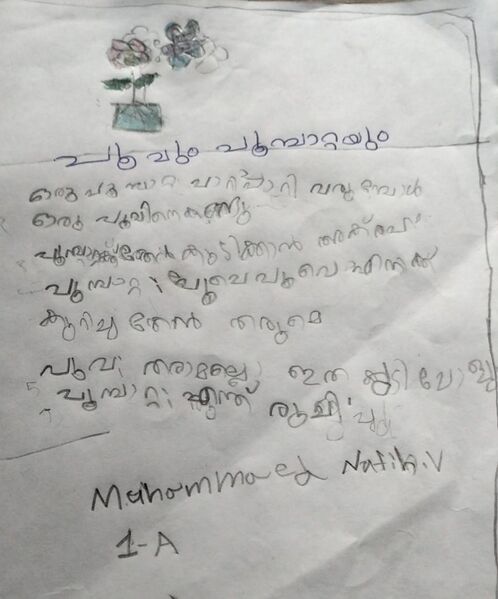 പൂവും പൂമ്പാറ്റയും
ഒരു പൂമ്പാറ്റ പാറിപ്പാറി വരുമ്പോൾ
ഒരു പൂവിനെ കണ്ടു
പൂമ്പാറ്റക്ക് തേൻ കുടിക്കാൻ
പൂമ്പാറ്റ: പൂവെ പൂവെ എനിക്ക്
കുറിച്ചു തേൻ തരുമെ
പൂവ്: തരാമല്ലൊ ഇതാ കുടിചോളൂ
പൂമ്പാറ്റ: എന്ത് രുചി
Mohammaed Natih.V
1-A